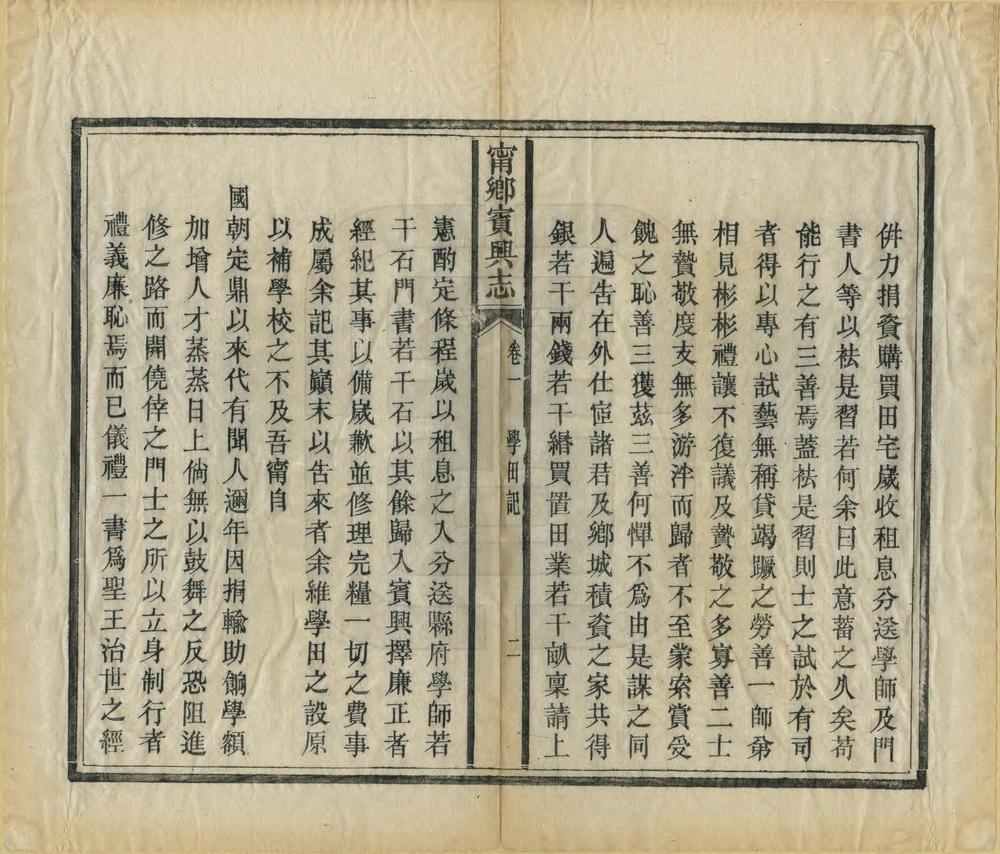 併力捐資購買田宅歲收租息分送學師及門
書人等以袪是習若何余曰此意蓄之久矣苟
能行之有三善焉蓋袪是習則士之試於有司
者得以專心試藝無稱貸竭蹶之勞善一師弟
相見彬彬禮讓不復議及贄敬之多寡善二士
無贄敬度支無多游泮而歸者不至蒙索賞受
餽之恥善三獲茲三善何憚不爲由是謀之同
人遍告在外仕宦諸君及鄉城積資之家共得
銀若干兩錢若干緡買置田業若干畝稟請上
甯鄉賓興志
卷一　學田記　二
憲酌定條程歲以租息之入分送縣府學師若
干石門書若干石以其餘歸入賓興擇廉正者
經紀其事以備歲歉並修理完糧一切之費事
成屬余記其巔末以告來者余維學田之設原
以補學校之不及吾甯自
國朝定鼎以來代有聞人邇年因捐輸助餉學額
加增人才蒸蒸日上倘無以鼓舞之反恐阻進
修之路而開僥倖之門士之所以立身制行者
禮義廉恥焉而已儀禮一書爲聖王治世之經